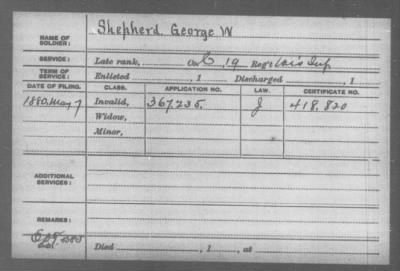 NAME OF SOLDIER: Shepherd, George W
SERVICE: Late rank, Co. C, 19 Reg't Wis Inf
TERM OF SERVICE: Enlisted , 1 Discharged , 1
DATE OF FILING. CLASS. APPLICATION NO. LAW. CERTIFICATE NO.
1880, May 7 Invalid, 367.235. J 418.820
Widow,
Minor,
ADDITIONAL SERVICES:
REMARKS:
Died , 1 , at